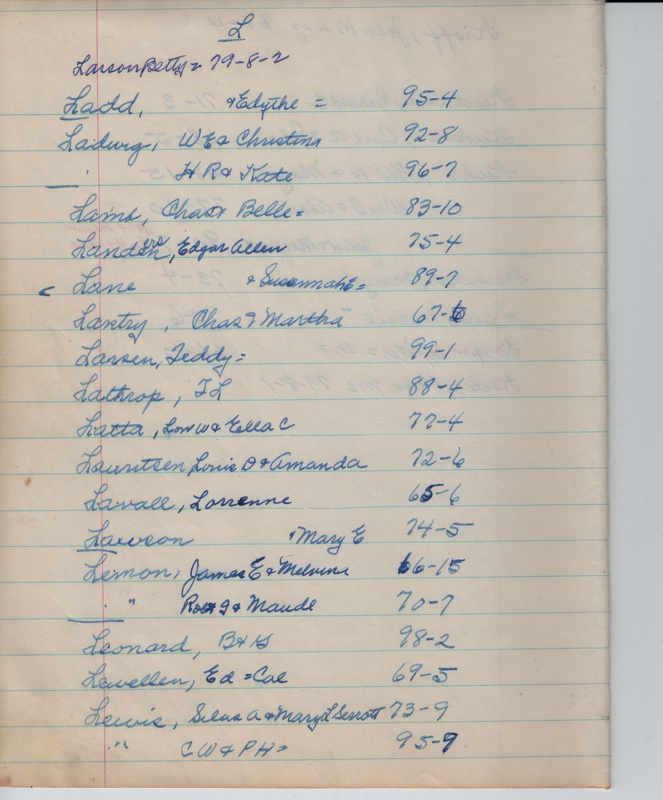 L
Larson Betty = 79-8-2
Ladd, & Edythe = 95-4
Ladwig, W E & Christina 92-8
" H R & Kate 96-7
Lamb, Chas & Belle = 83-10
Landen, Edgar Allen 75-4
Lane & Susannah E = 89-7
Lantry, Chas & Martha 67-6
Larsen, Teddy = 99-1
Lathrop, F L 88-4
Latta, W & Ella C 77-4
Lauritsen, Louie D & Amanda 72-6
Lavall, Lorrenne 65-6
Lawson & Mary E 74-5
Lemon, James E & Melvina 66-15
" & Maude 70-7
Leonard, B & 98-2
Lewellen, Ed = Cal 69-5
Lewis, Silas A & Mary L Serrott 73-9
" C W & P H = 95-9